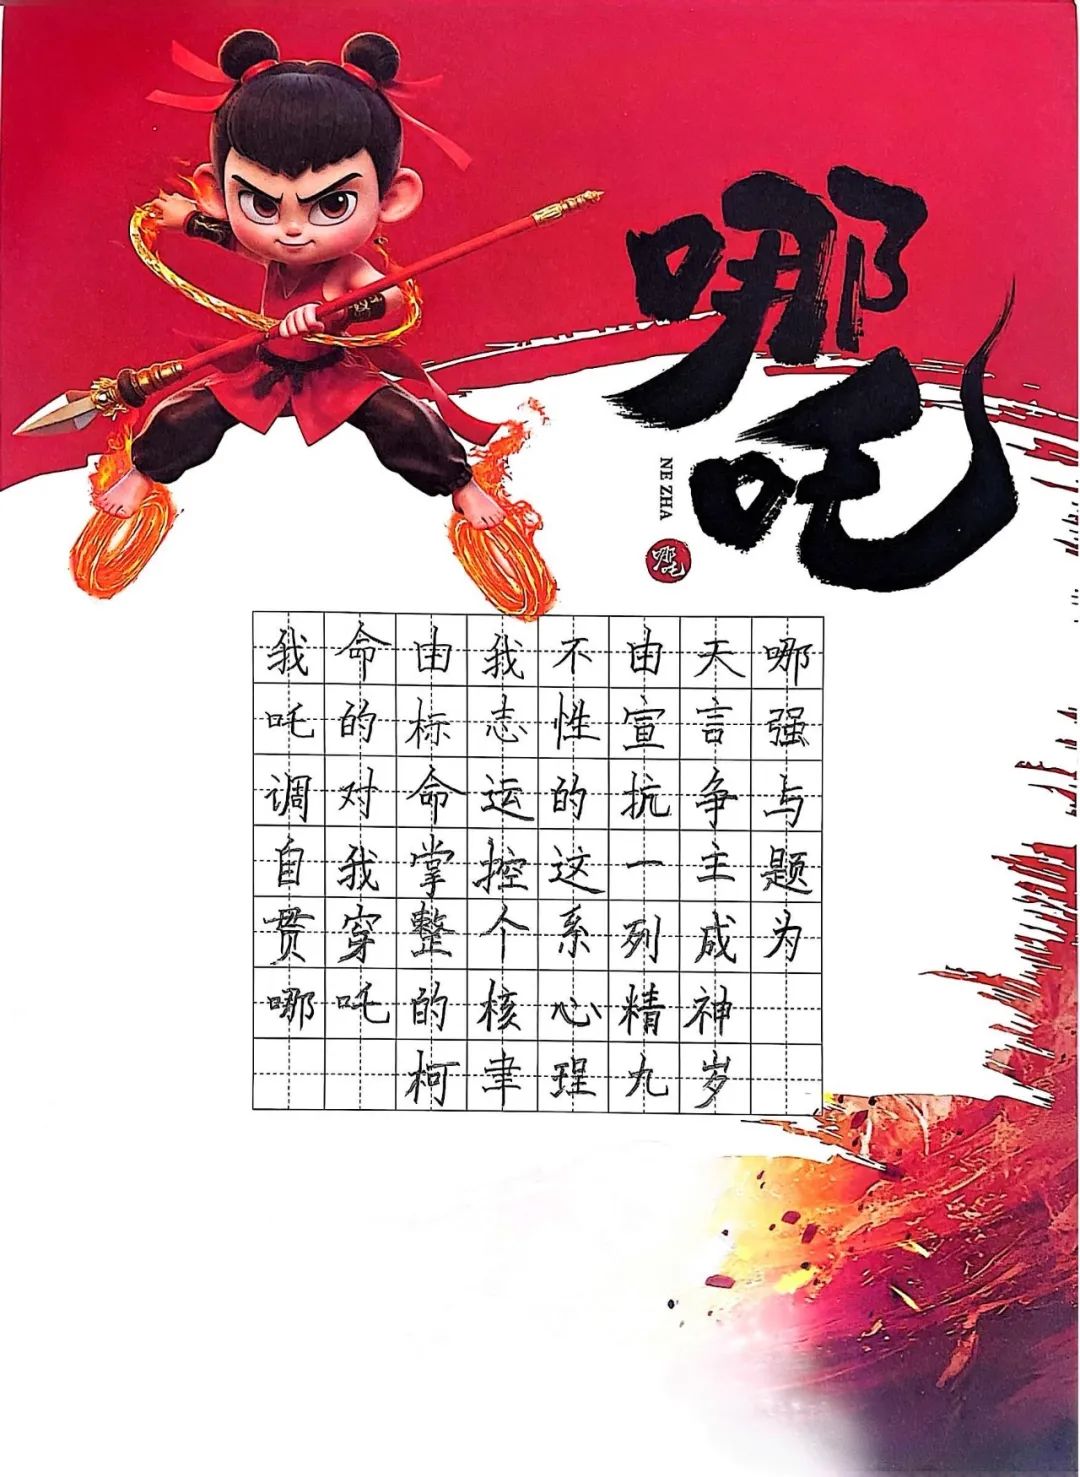 哪吒
NE ZHA
哪吒
我命由我不由天哪
吒的标志性宣言强
调对命运的抗争与
自我掌控这一主题
贯穿整个系列成为
哪吒的核心精神
柯聿珵九岁